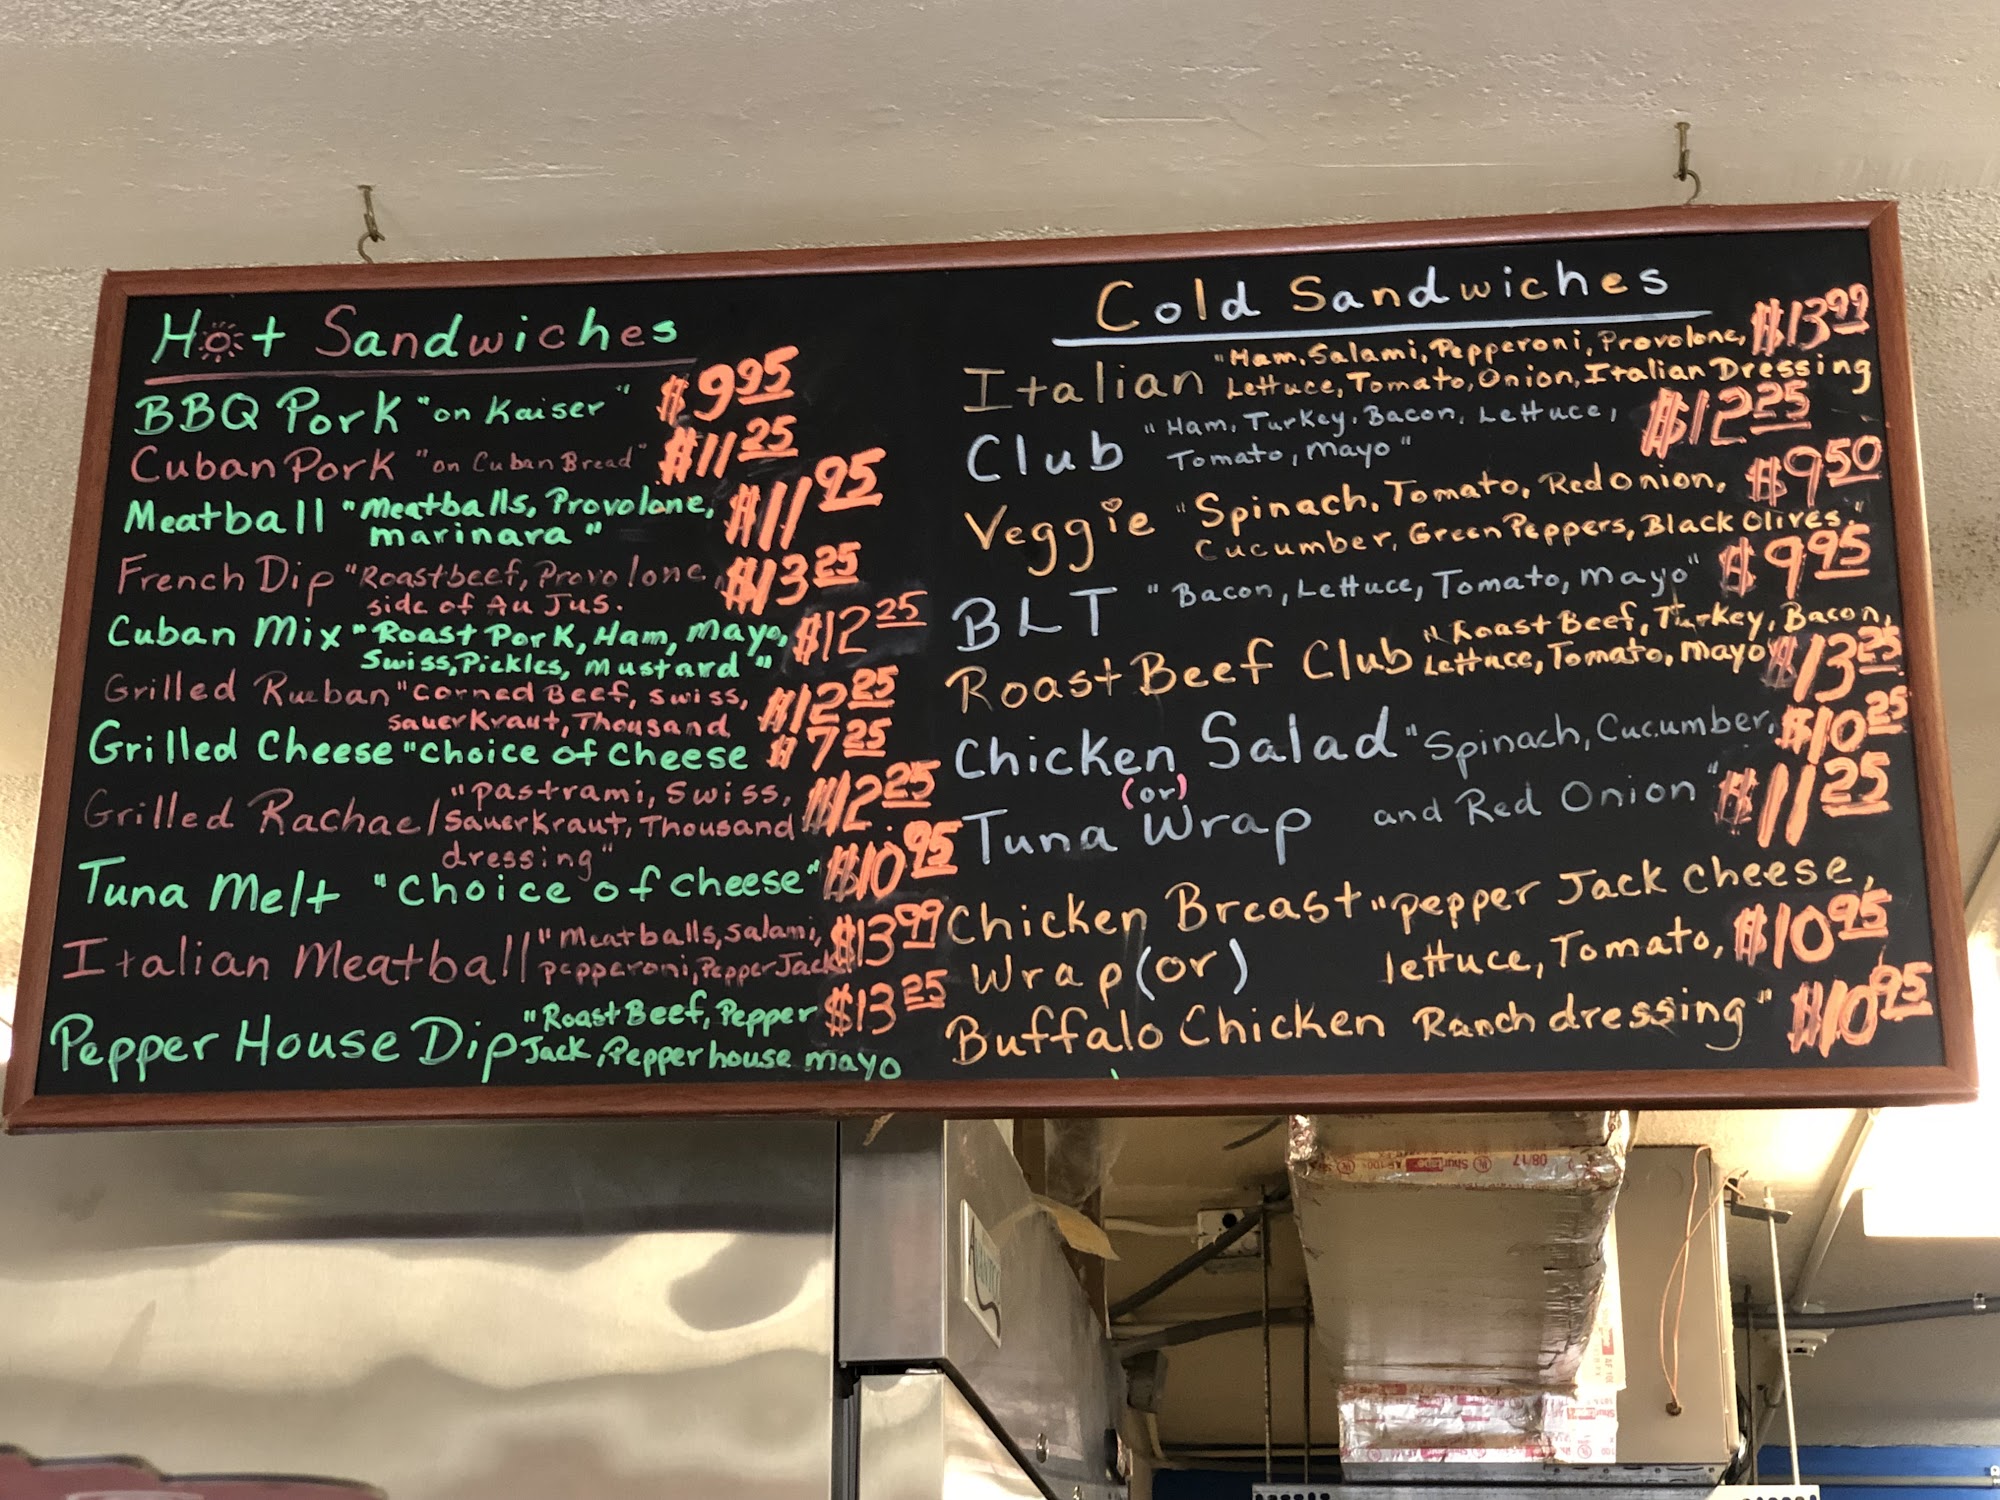 Hot Sandwiches
BBQ Pork "on Kaiser" $9.95
Cuban Pork "on Cuban Bread" $11.25
Meatball "Meatballs, Provolone, $11.95
marinara"
French Dip "Roastbeef, Provolone, $13.25
side of Au Jus.
Cuban Mix "Roast Pork, Ham, Mayo, $12.25
Swiss, Pickles, Mustard"
Grilled Rueban "Corned Beef, Swiss, $12.25
Sauerkraut, Thousand
Grilled Cheese "Choice of Cheese $7.25
Grilled Rachael "Pastrami, Swiss, $12.25
Sauerkraut, Thousand
dressing"
Tuna Melt "Choice of Cheese" $10.95
Italian Meatball "Meatballs, Salami, $13.99
pepperoni, Pepper Jack
Pepper House Dip "Roast Beef, Pepper $13.25
Jack, Pepperhouse mayo
Cold Sandwiches
Italian "Ham, Salami, Pepperoni, Provolone, $13.99
Lettuce, Tomato, Onion, Italian Dressing
Club "Ham, Turkey, Bacon, Lettuce, $12.25
Tomato, Mayo"
Veggie "Spinach, Tomato, Red onion, $9.50
Cucumber, Green Peppers, Black Olives,"
BLT "Bacon, Lettuce, Tomato, Mayo" $9.95
Roast Beef Club "Roast Beef, Turkey, Bacon,
Lettuce, Tomato, Mayo" $13.25
Chicken Salad "Spinach, Cucumber, $10.25
(or)
Tuna Wrap and Red Onion" $11.25
Chicken Breast "Pepper Jack Cheese,
Wrap (or) lettuce, Tomato, $10.95
Buffalo Chicken Ranch dressing" $10.95
08/17